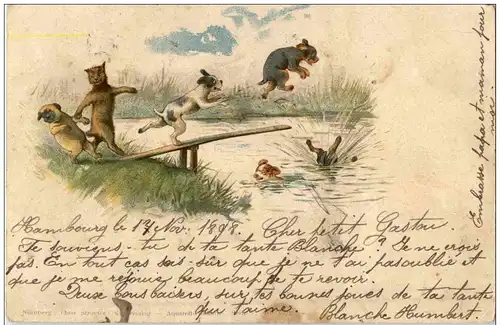 Hambourg le 17 Nov: 1898. Cher petit Gaston.
Te souviens-tu de ta tante Blanche? Je ne crois
pas. En tout cas sois-sûr que je ne t'ai pas oublié et
que je me réjouis beaucoup de te revoir.
Deux bons baisers sur tes bonnes joues de ta tante
qui t'aime. Blanche Humbert.
Embrasse papa et maman pour
moi.
Nürnberg